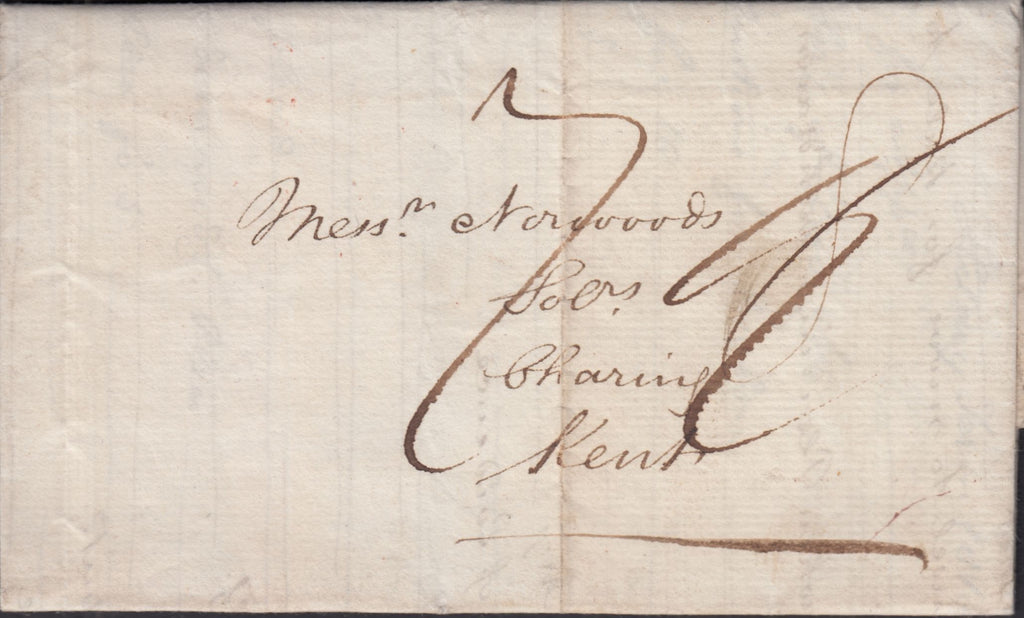 Messrs. Norwoods
Solrs.
Charing
Kent